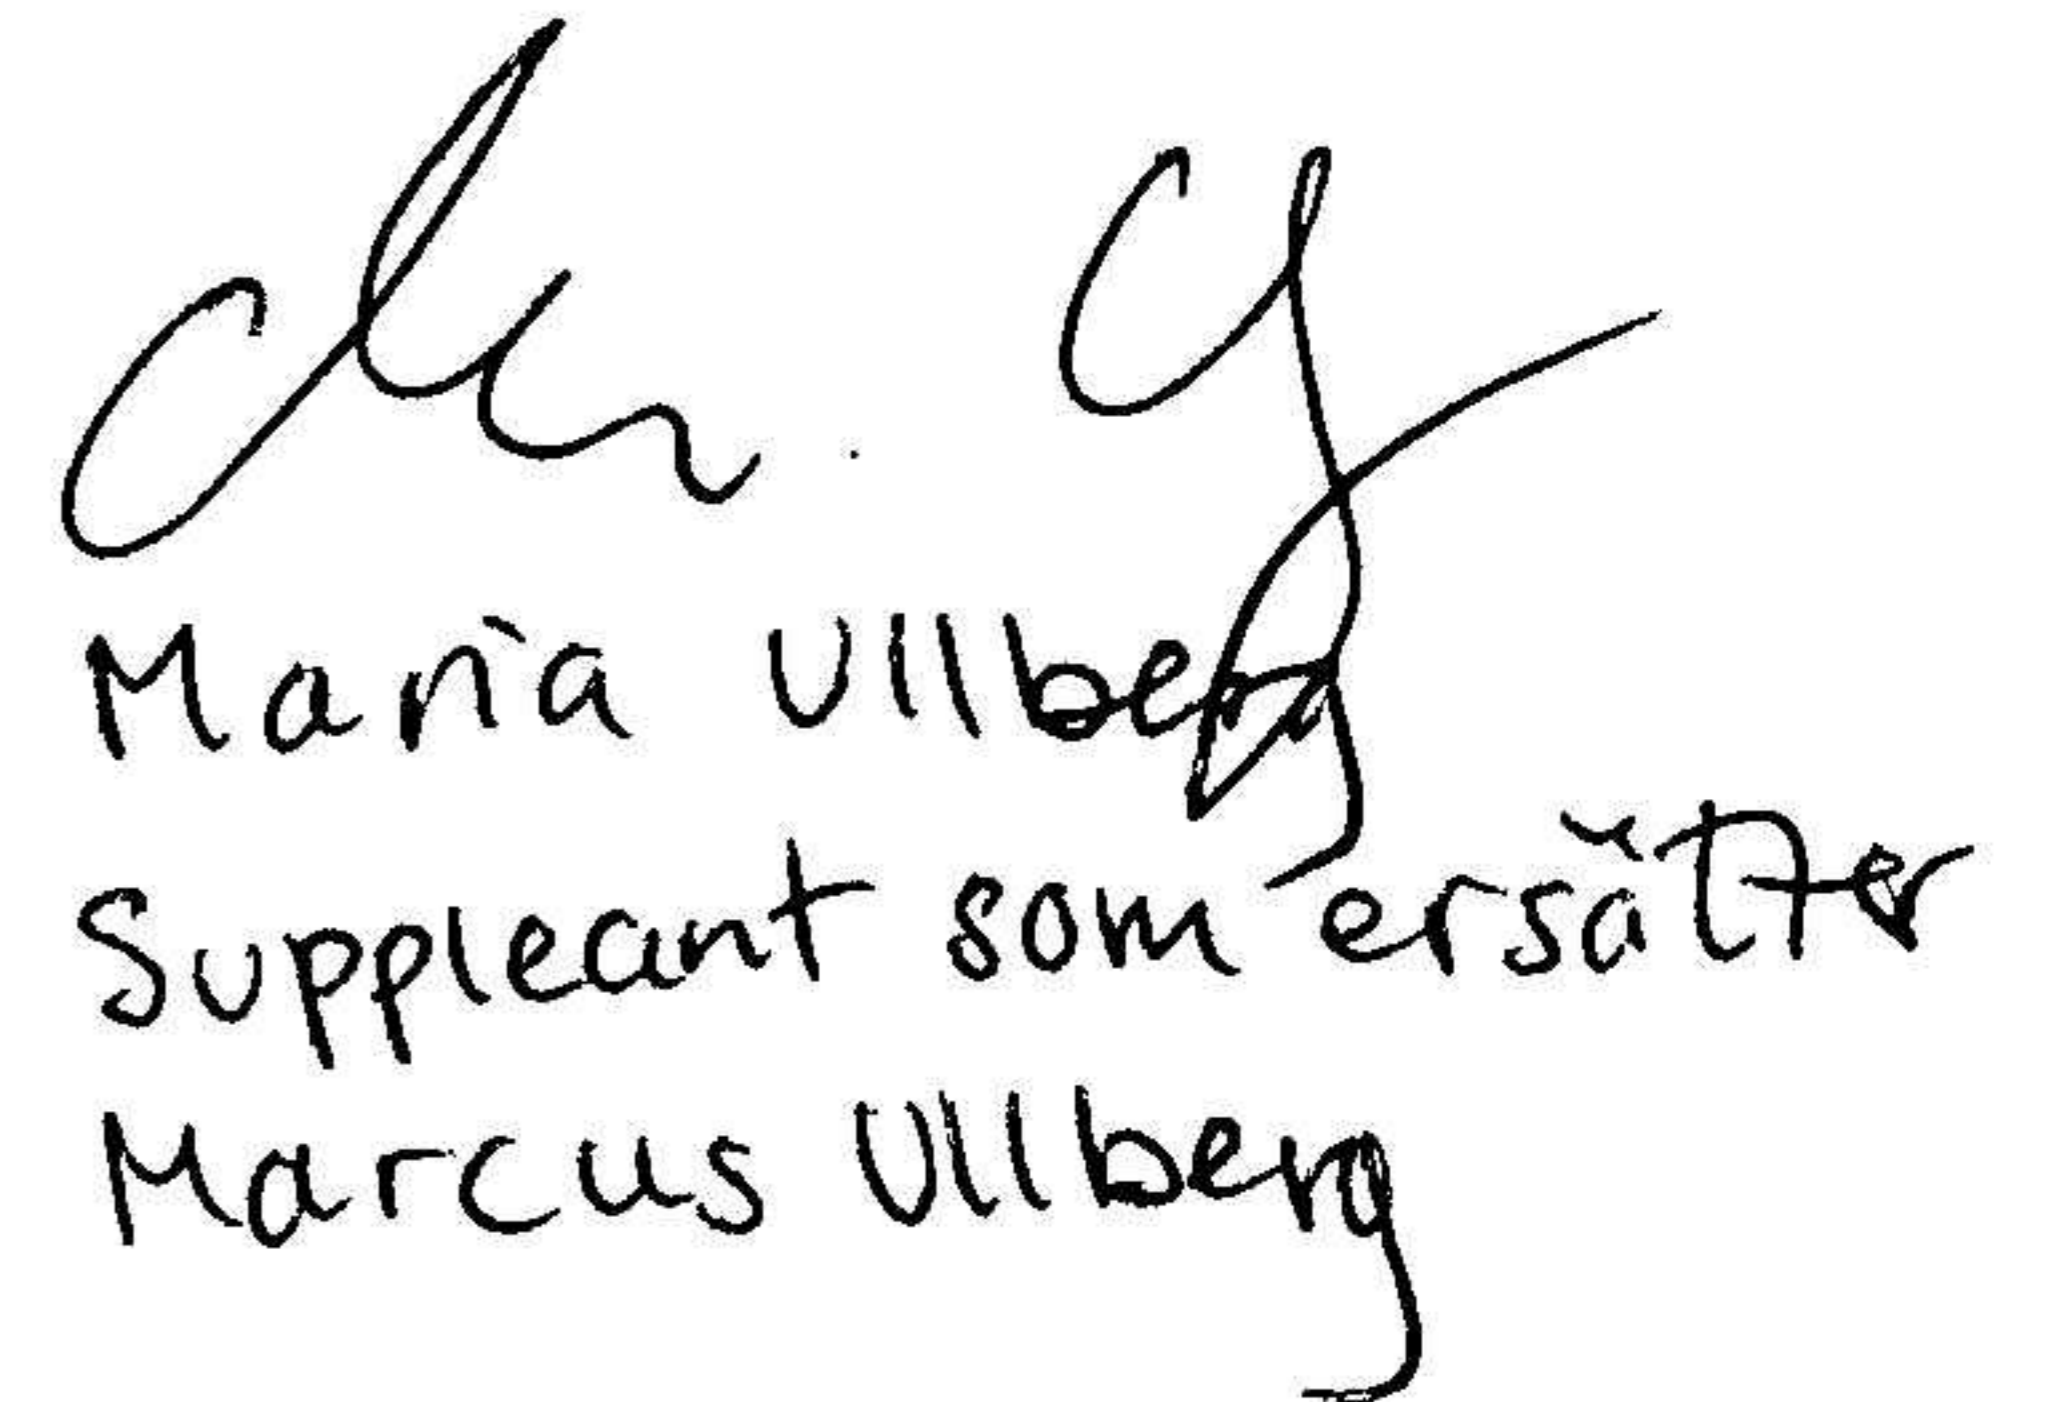 Maria Ullberg
Suppleant som ersätter
Marcus Ullberg